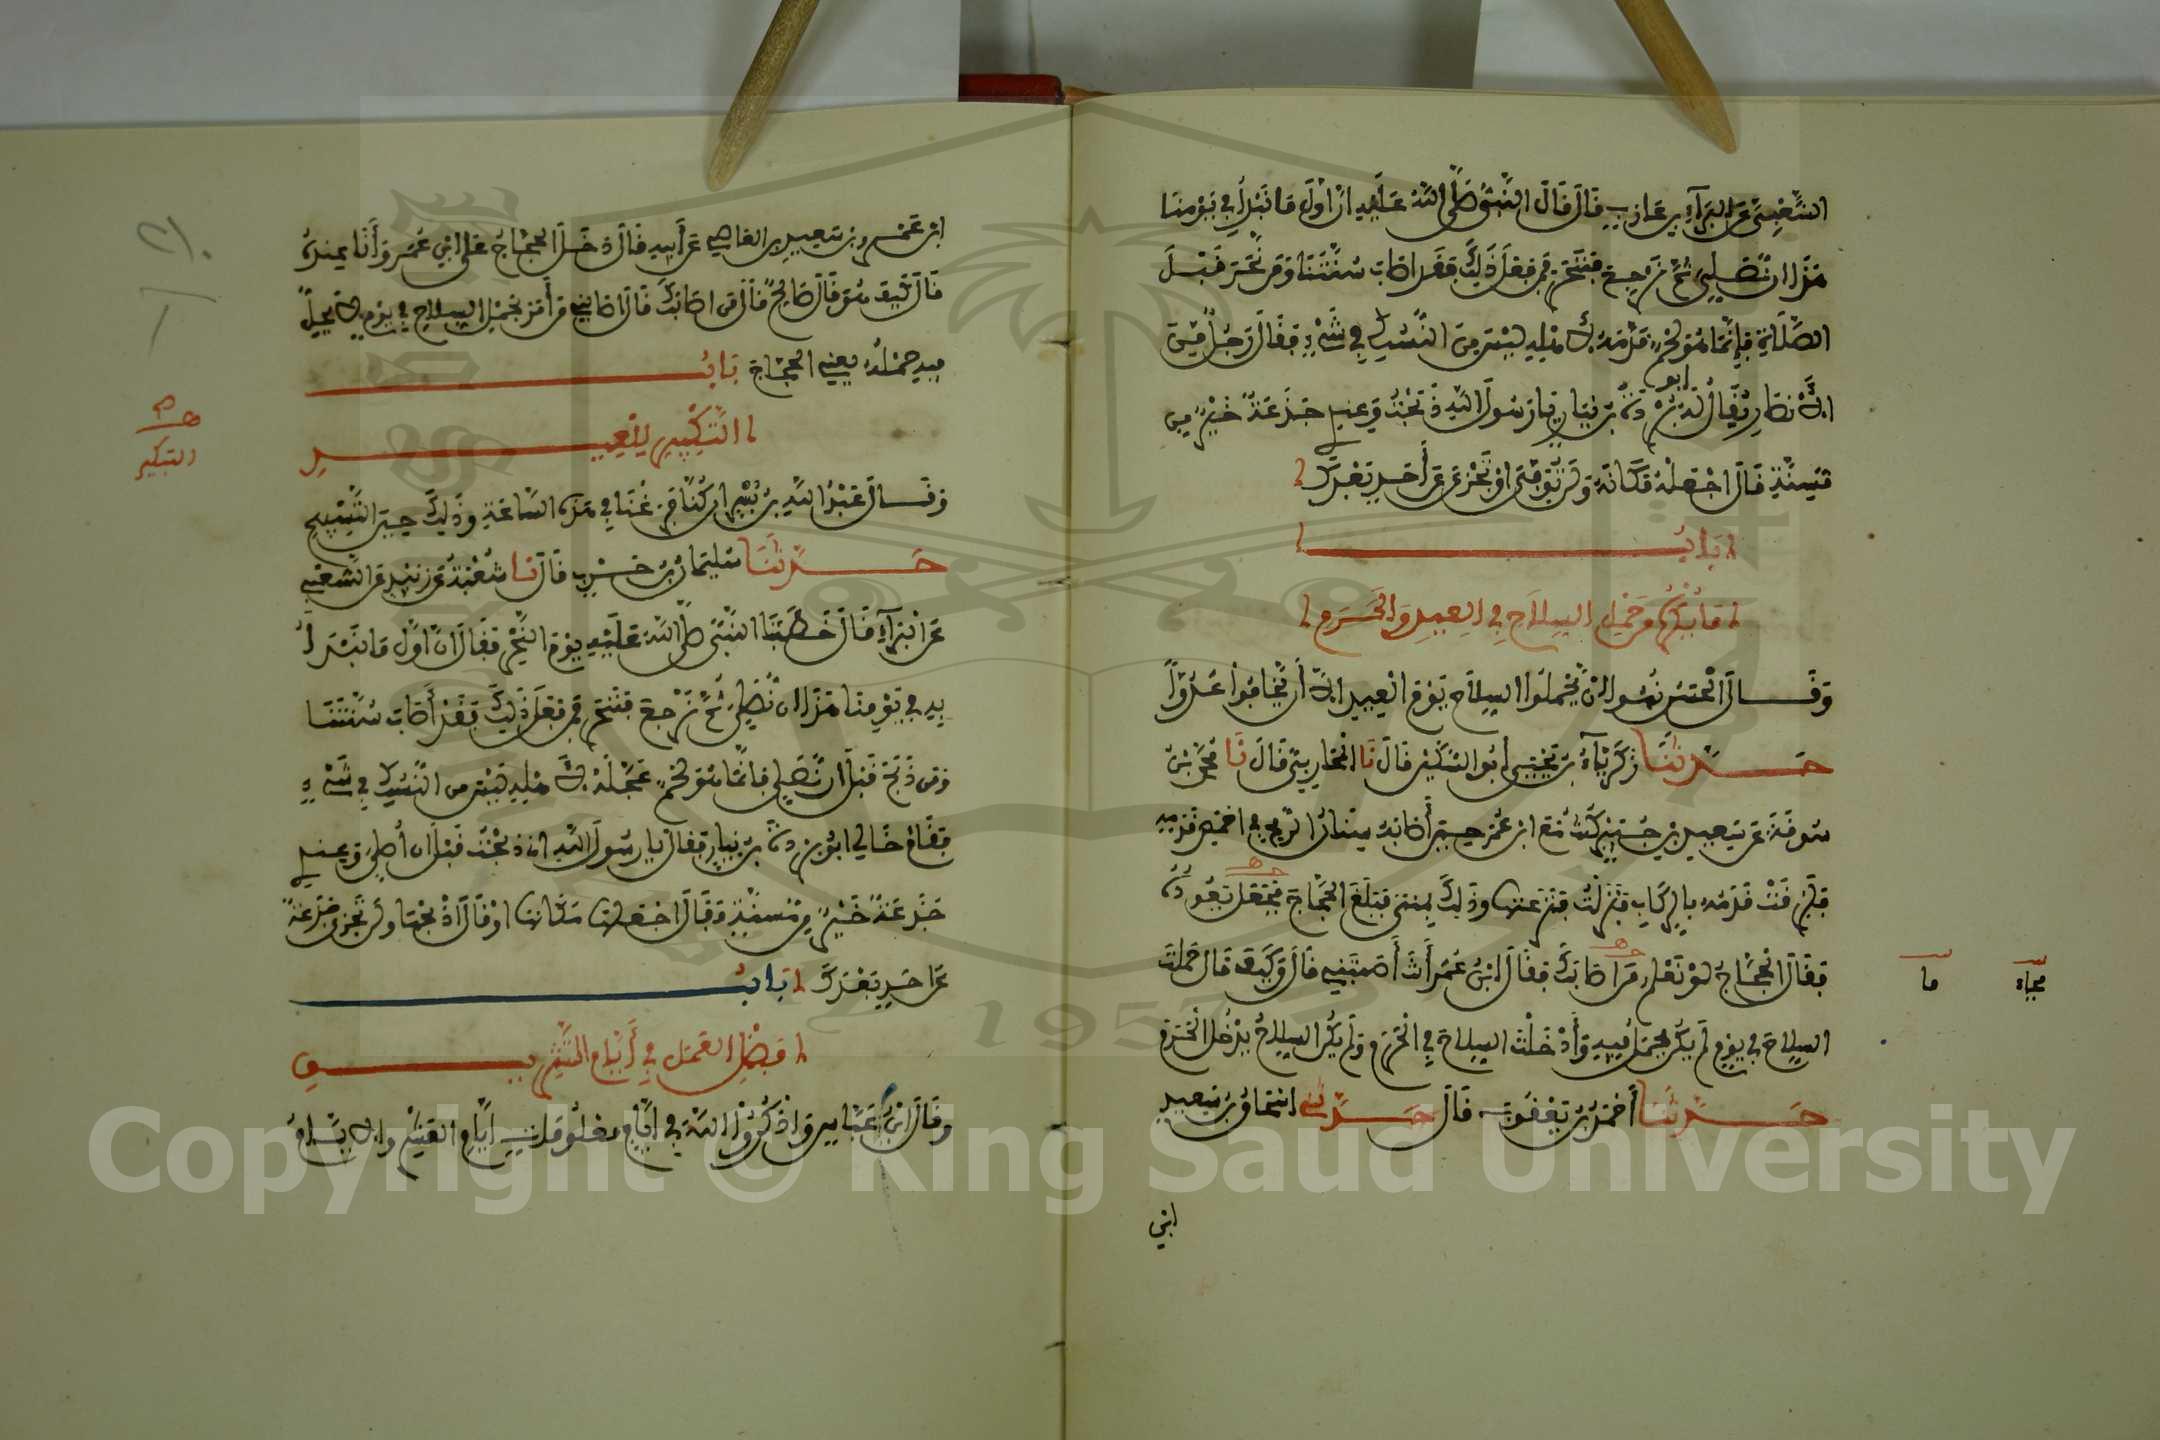 الشَّعْبِيِّ عَنِ الْبَرَاءِ بْنِ عَازِبٍ قَالَ قَالَ النَّبِيُّ صَلَّى اللَّهُ عَلَيْهِ إِنَّ أَوَّلَ مَا نَبْدَأُ فِي يَوْمِنَا
هَذَا أَنْ نُصَلِّيَ ثُمَّ نَرْجِعَ فَنَنْحَرَ فَمَنْ فَعَلَ ذَلِكَ فَقَدْ أَصَابَ سُنَّتَنَا وَمَنْ نَحَرَ قَبْلَ
الصَّلَاةِ فَإِنَّمَا هُوَ لَحْمٌ قَدَّمَهُ لِأَهْلِهِ لَيْسَ مِنَ النُّسُكِ فِي شَيْءٍ فَقَالَ رَجُلٌ مِنَ
الْأَنْصَارِ يُقَالُ لَهُ أبو بُرْدَةَ بْنُ نِيَارٍ يَا رَسُولَ اللَّهِ ذَبَحْتُ وَعِنْدِي جَذَعَةٌ خَيْرٌ مِنْ
مُسِنَّةٍ قَالَ اجْعَلْهُ مَكَانَهُ وَلَنْ تُوفِيَ أَوْ تَجْزِيَ عَنْ أَحَدٍ بَعْدَكَ
بَابُ
مَا يُكْرَهُ مِنْ حَمْلِ السِّلَاحِ فِي الْعِيدِ وَالْحَرَمِ
وَقَالَ الْحَسَنُ نُهُوا أَنْ يَحْمِلُوا السِّلَاحَ يَوْمَ الْعِيدِ إِلَّا أَنْ يَخَافُوا عَدُوًّا
حَدَّثَنَا زَكَرِيَّاءُ بْنُ يَحْيَى أَبُو السُّكَيْنِ قَالَ نَا الْمُحَارِبِيُّ قَالَ نَا مُحَمَّدُ بْنُ
سُوقَةَ عَنْ سَعِيدِ بْنِ جُبَيْرٍ كُنْتُ مَعَ ابْنِ عُمَرَ حِينَ أَصَابَهُ سِنَانُ الرُّمْحِ فِي أَخْمَصِ قَدَمِهِ
فَلَزِقَتْ قَدَمُهُ بِالرِّكَابِ فَنَزَلْتُ فَنَزَعْتُهَا وَذَلِكَ بِمِنًى فَبَلَغَ الْحَجَّاجَ فَجَعَلَ يَعُودُهُ
فَقَالَ الْحَجَّاجُ لَوْ نَعْلَمُ مَنْ أَصَابَكَ فَقَالَ ابْنُ عُمَرَ أَنْتَ أَصَبْتَنِي قَالَ وَكَيْفَ قَالَ حَمَلْتَ
السِّلَاحَ فِي يَوْمٍ لَمْ يَكُنْ يُحْمَلُ فِيهِ وَأَدْخَلْتَ السِّلَاحَ فِي الْحَرَمِ وَلَمْ يَكُنِ السِّلَاحُ يُدْخَلُ الْحَرَمَ
حَدَّثَنَا أَحْمَدُ بْنُ يَعْقُوبَ قَالَ حَدَّثَنِي إِسْحَاقُ بْنُ سَعِيدِ
ابن
ما
ابْنِ عَمْرِو بْنِ سَعِيدِ بْنِ الْعَاصِي عَنْ أَبِيهِ قَالَ دَخَلَ الْحَجَّاجُ عَلَى ابْنِ عُمَرَ وَأَنَا عِنْدَهُ
قَالَ كَيْفَ هُوَ قَالَ صَالِحٌ قَالَ مَنْ أَصَابَكَ قَالَ أَصَابَنِي مَنْ أَمَرَ بِحَمْلِ السِّلَاحِ فِي يَوْمٍ لَا يَحِلُّ
فِيهِ حَمْلُهُ يَعْنِي الْحَجَّاجَ بَابُ
التَّكْبِيرِ لِلْعِيدِ
وَقَالَ عَبْدُ اللَّهِ بْنُ بُسْرٍ إِنْ كُنَّا فَرَغْنَا فِي هَذِهِ السَّاعَةِ وَذَلِكَ حِينَ التَّسْبِيحِ
حَدَّثَنَا سُلَيْمَانُ بْنُ حَرْبٍ قَالَ نَا شُعْبَةُ عَنْ زُبَيْدٍ عَنِ الشَّعْبِيِّ
عَنِ الْبَرَاءِ قَالَ خَطَبَنَا النَّبِيُّ صَلَّى اللَّهُ عَلَيْهِ يَوْمَ النَّحْرِ فَقَالَ إِنَّ أَوَّلَ مَا نَبْدَأُ
بِهِ فِي يَوْمِنَا هَذَا أَنْ نُصَلِّيَ ثُمَّ نَرْجِعَ فَنَنْحَرَ فَمَنْ فَعَلَ ذَلِكَ فَقَدْ أَصَابَ سُنَّتَنَا
وَمَنْ ذَبَحَ قَبْلَ أَنْ نُصَلِّيَ فَإِنَّمَا هُوَ لَحْمٌ عَجَّلَهُ لِأَهْلِهِ لَيْسَ مِنَ النُّسُكِ فِي شَيْءٍ
فَقَامَ خَالِي أَبُو بُرْدَةَ بْنُ نِيَارٍ فَقَالَ يَا رَسُولَ اللَّهِ أَنَا ذَبَحْتُ قَبْلَ أَنْ أُصَلِّيَ وَعِنْدِي
جَذَعَةٌ خَيْرٌ مِنْ مُسِنَّةٍ فَقَالَ اجْعَلْهَا مَكَانَهَا أَوْ قَالَ اذْبَحْهَا وَلَنْ تَجْزِيَ جَذَعَةٌ
عَنْ أَحَدٍ بَعْدَكَ بَابُ
فَضْلِ الْعَمَلِ فِي أَيَّامِ التَّشْرِيقِ
وَقَالَ ابْنُ عَبَّاسٍ وَاذْكُرُوا اللَّهَ فِي أَيَّامٍ مَعْلُومَاتٍ أَيَّامُ الْعَشْرِ وَالْأَيَّامُ
التكبير
Copyright © King Saud University
1957